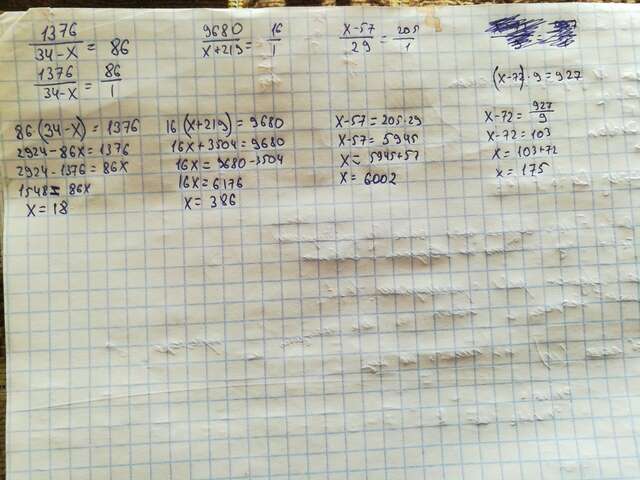 1376/(34-x) = 86
1376/(34-x) = 86/1
86(34-x) = 1376
2924-86x = 1376
2924-1376 = 86x
1548 = 86x
x = 18
9680/(x+219) = 16/1
16(x+219) = 9680
16x+3504 = 9680
16x = 9680-3504
16x = 6176
x = 386
(x-57)/29 = 205/1
x-57 = 205·29
x-57 = 5945
x = 5945+57
x = 6002
(x-72)·9 = 927
x-72 = 927/9
x-72 = 103
x = 103+72
x = 175